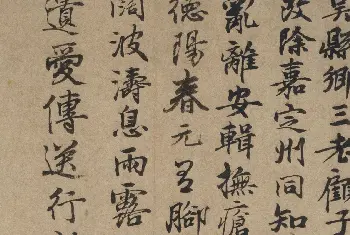 吳縣鄉三老顧子
改除嘉定州同知
亂離安輯撫瘡
德陽春元呂腳
闊波濤息雨露
遺愛傳送行